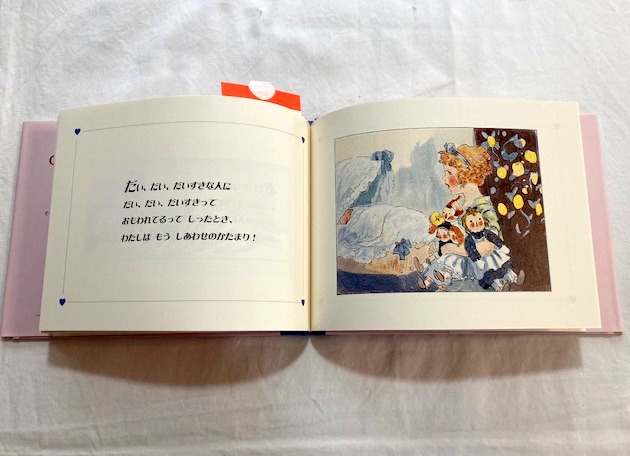 だい、だい、だいすきな人に
だい、だい、だいすきって
おもわれてるって しったとき、
わたしは もう しあわせのかたまり！